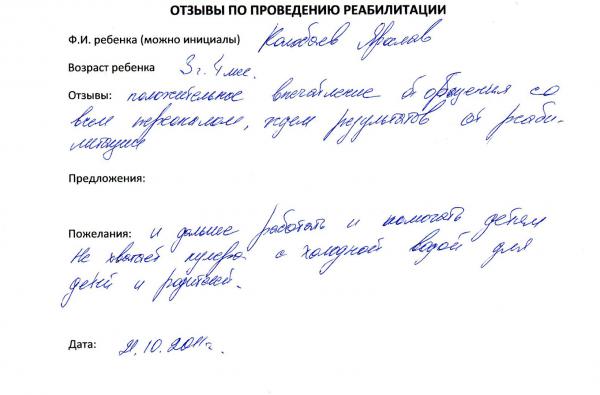 ОТЗЫВЫ ПО ПРОВЕДЕНИЮ РЕАБИЛИТАЦИИ
Ф.И. ребенка (можно инициалы) Ярослав
Возраст ребенка 3 г. 4 мес.
Отзывы: положительное впечатление от общения со
всем персоналом, ждем результатов от реаби-
литации
Предложения:
Пожелания: и дальше работать и помогать детям
Не хватает кулера с холодной водой для
детей и родителей.
Дата: 21.10.2011г.